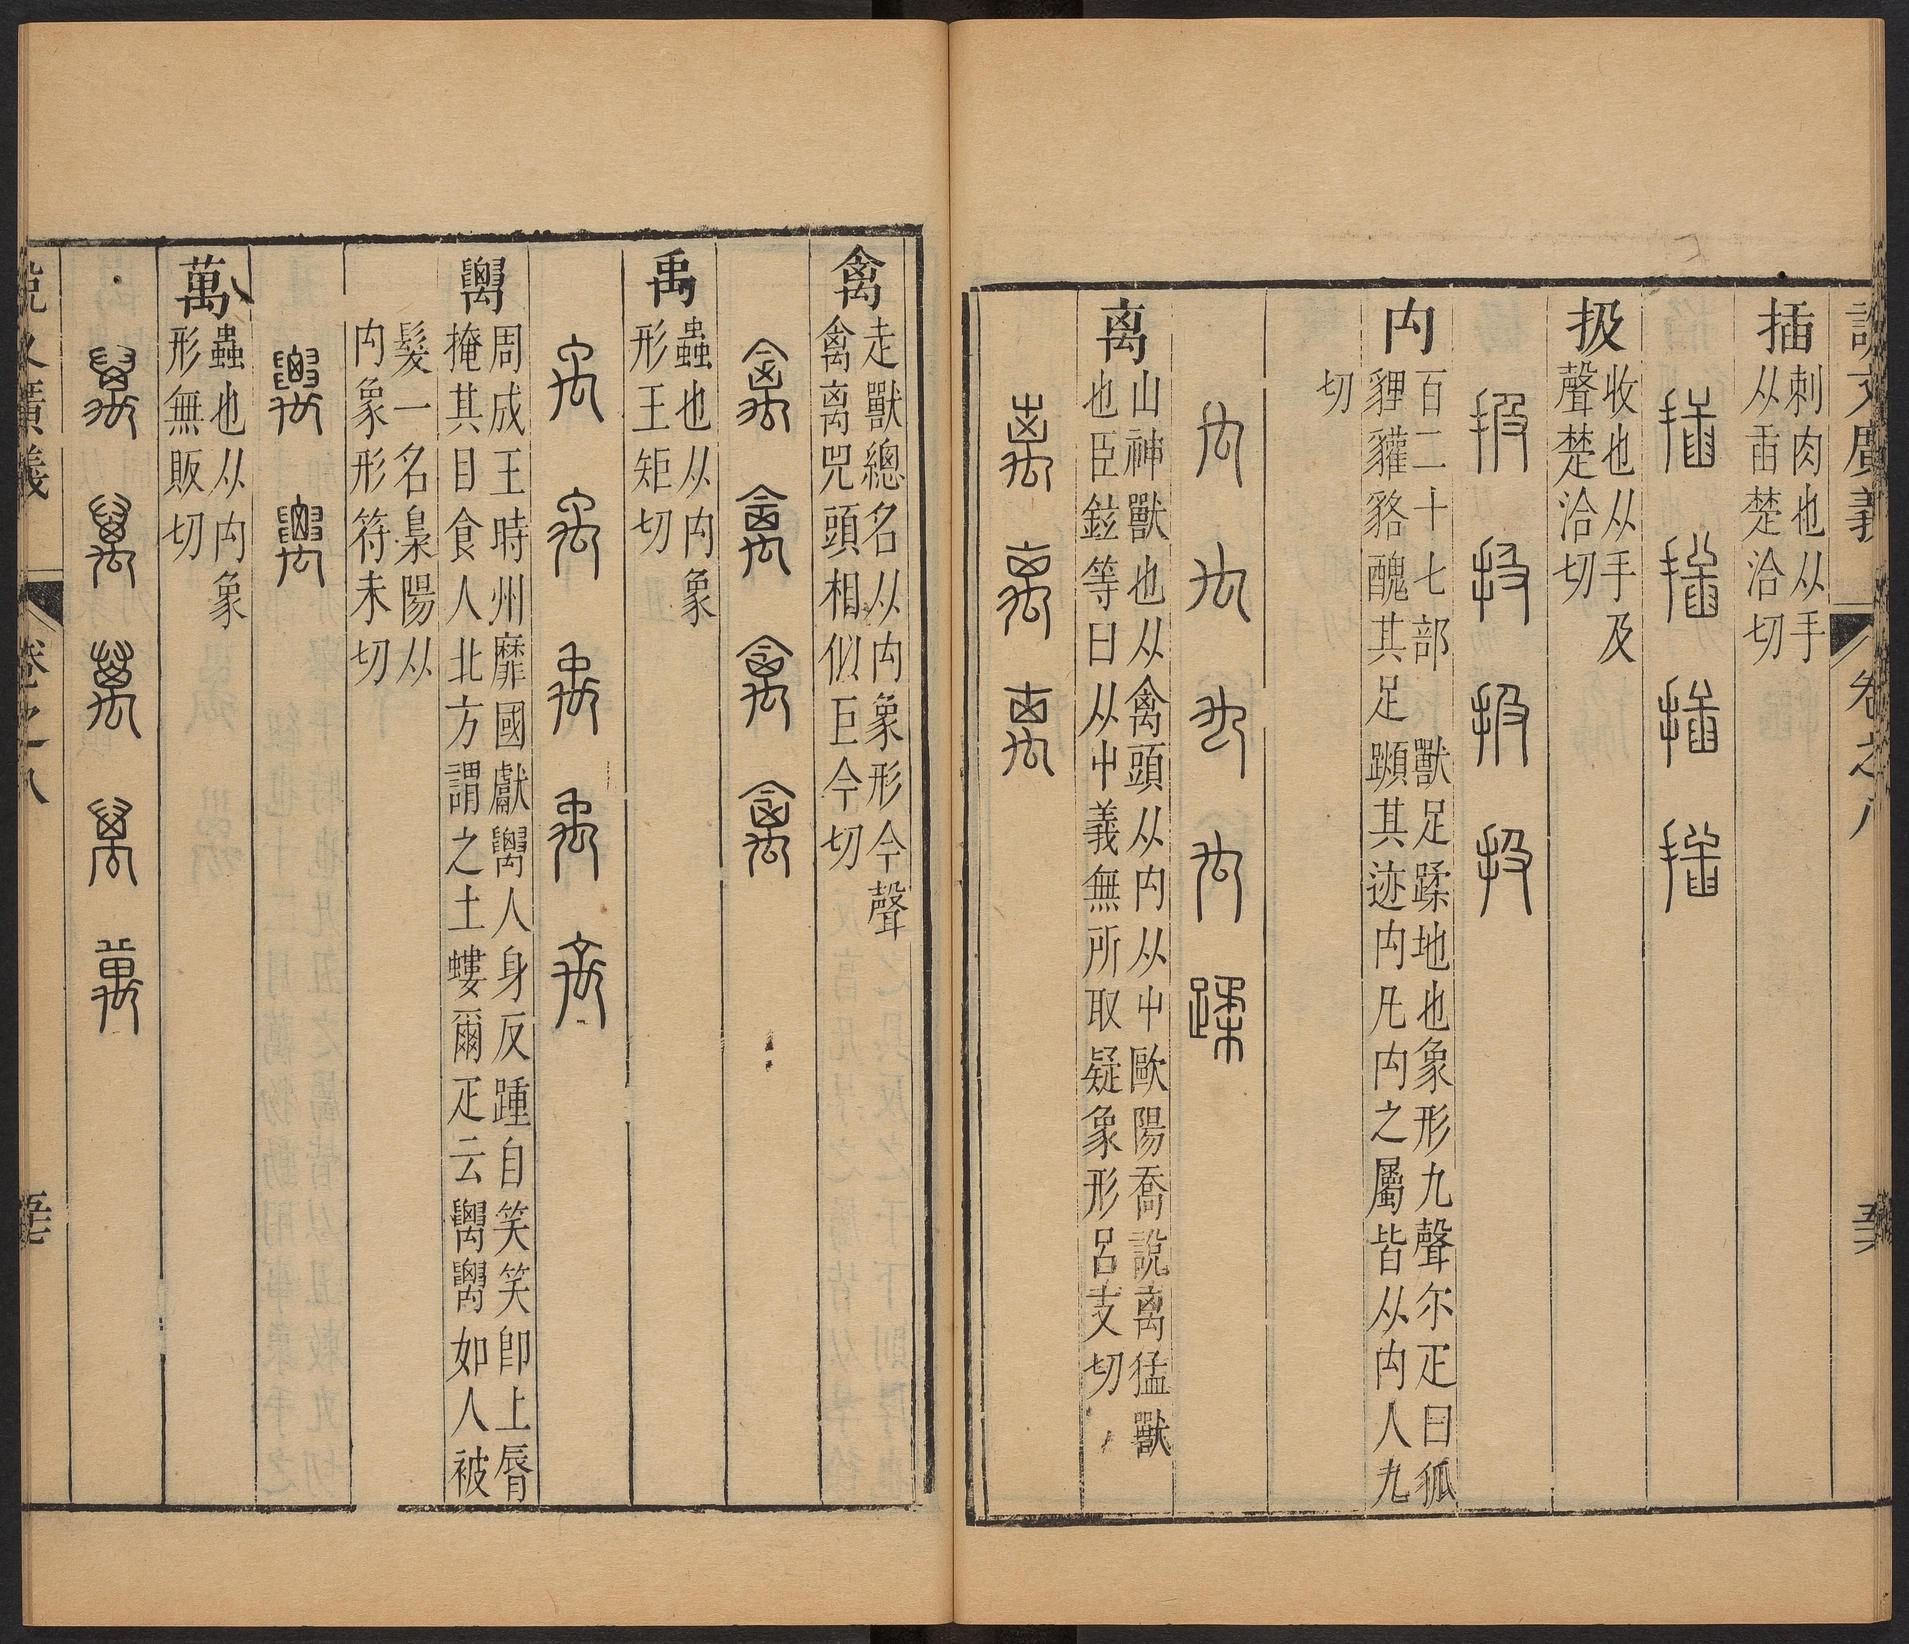 說文廣義 卷之八
插 刺肉也从手
从臿楚洽切
插 插 插 插
扱 收也从手及
聲楚洽切
扱 扱 扱 扱
禸 百二十七部 獸足蹂地也象形九聲尔疋曰狐
貍貛貉醜其足蹞其迹禸凡禸之屬皆从禸人九
切
禸 禸 禸 禸 蹂
离 山神獸也从禽頭从禸从屮歐陽喬說离猛獸
也臣鉉等曰从屮義無所取疑象形呂支切
离 离 离
禽 走獸總名从禸象形今聲
禽离兕頭相似巨今切
禽 禽 禽 禽
禹 蟲也从禸象
形王矩切
禹 禹 禹 禹 禹
𥜿 周成王時州靡國獻𥜿人身反踵自笑笑卽上脣
掩其目食人北方謂之土螻爾疋云𥜿𥜿如人被
髮一名梟陽从
禸象形符未切
𥜿 𥜿
萬 蟲也从禸象
形無販切
萬 萬 萬 萬 萬
說文廣義 卷之八